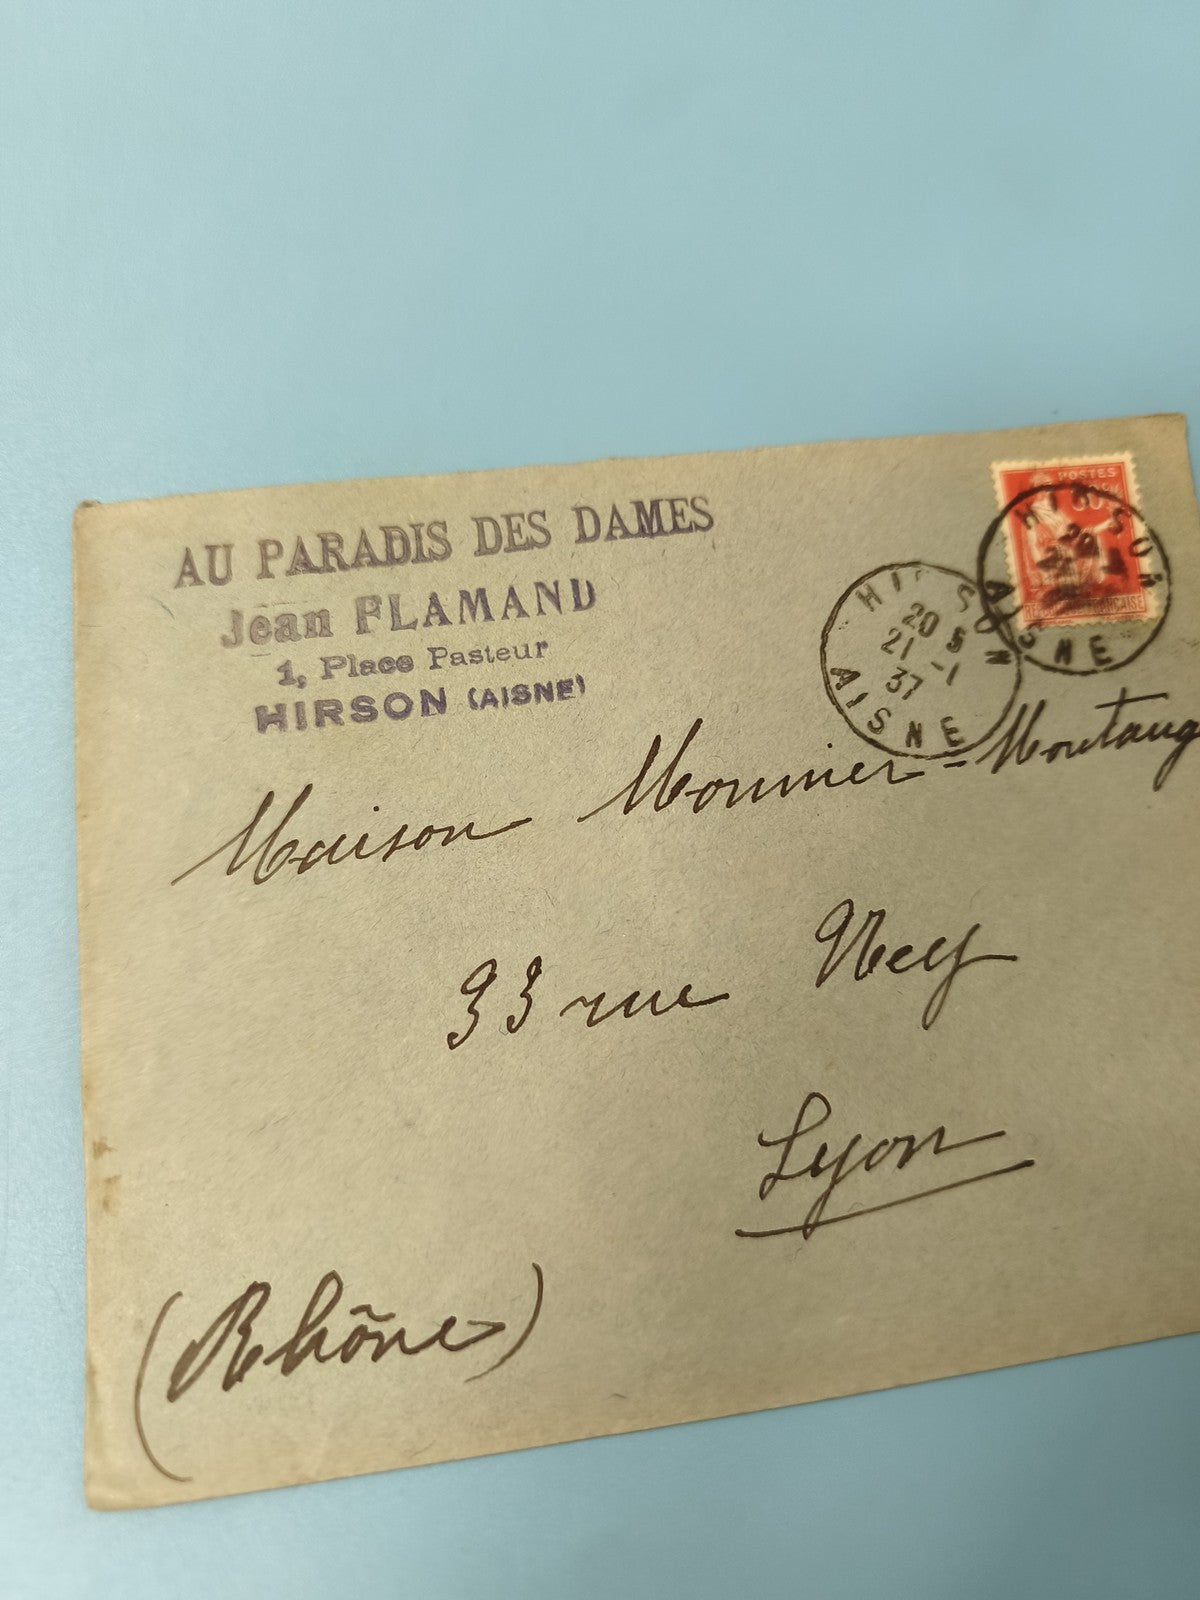 AU PARADIS DES DAMES
Jean FLAMAND
1, Place Pasteur
HIRSON (AISNE)
POSTES
HIRSON
AISNE
HIRSON
20 5
21 -1
37
AISNE
Maison Monnier-Montaug
33 rue Ney
Lyon
(Rhône)